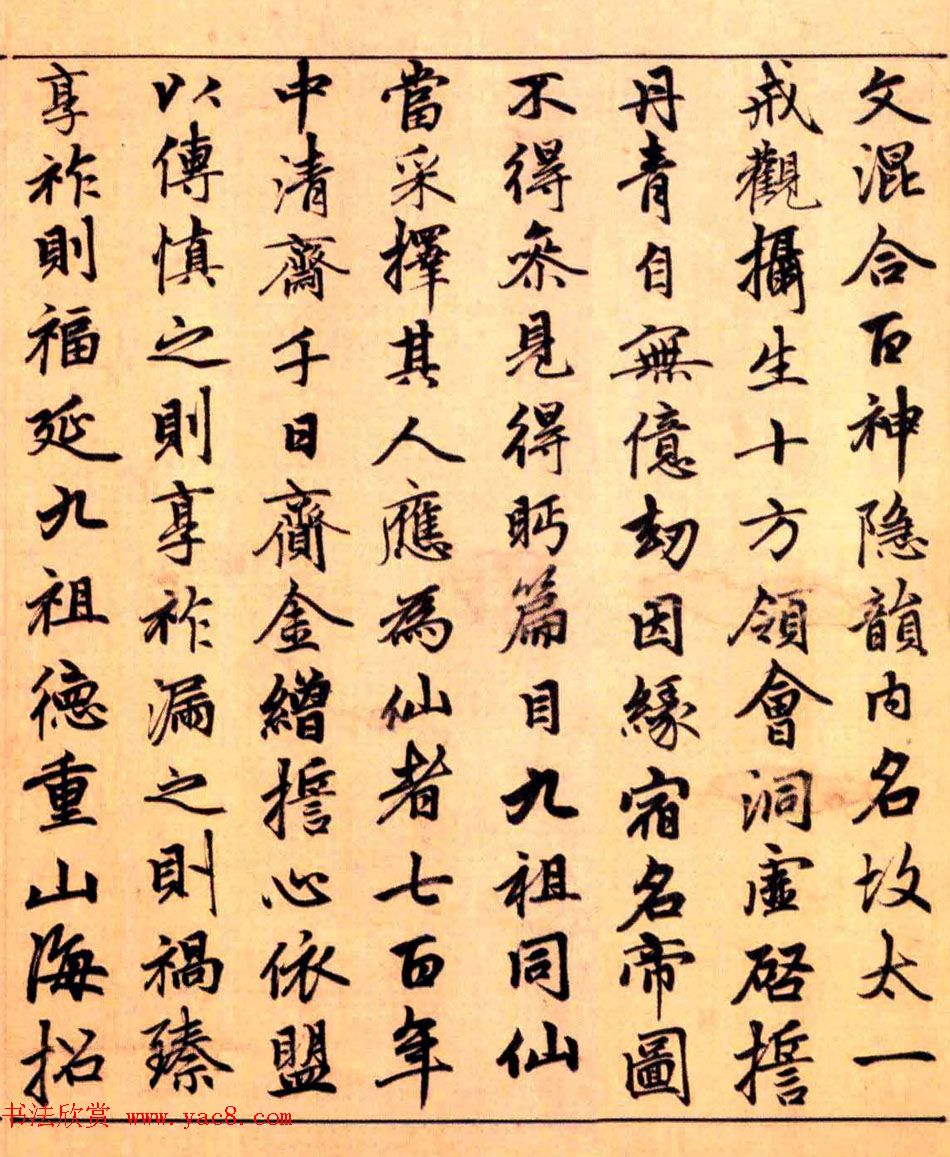 文混合百神隐韻内名故太一
戒觀攝生十方領會洞虛啓誓
丹青自無億劫因緣宿名帝圖
不得叅見得眄篇目九祖同仙
當采擇其人應為仙者七百年
中清齋千日齎金繒誓心依盟
以傳慎之則享祚漏之則禍臻
享祚則福延九祖德重山海招
书法欣赏 www.yac8.com